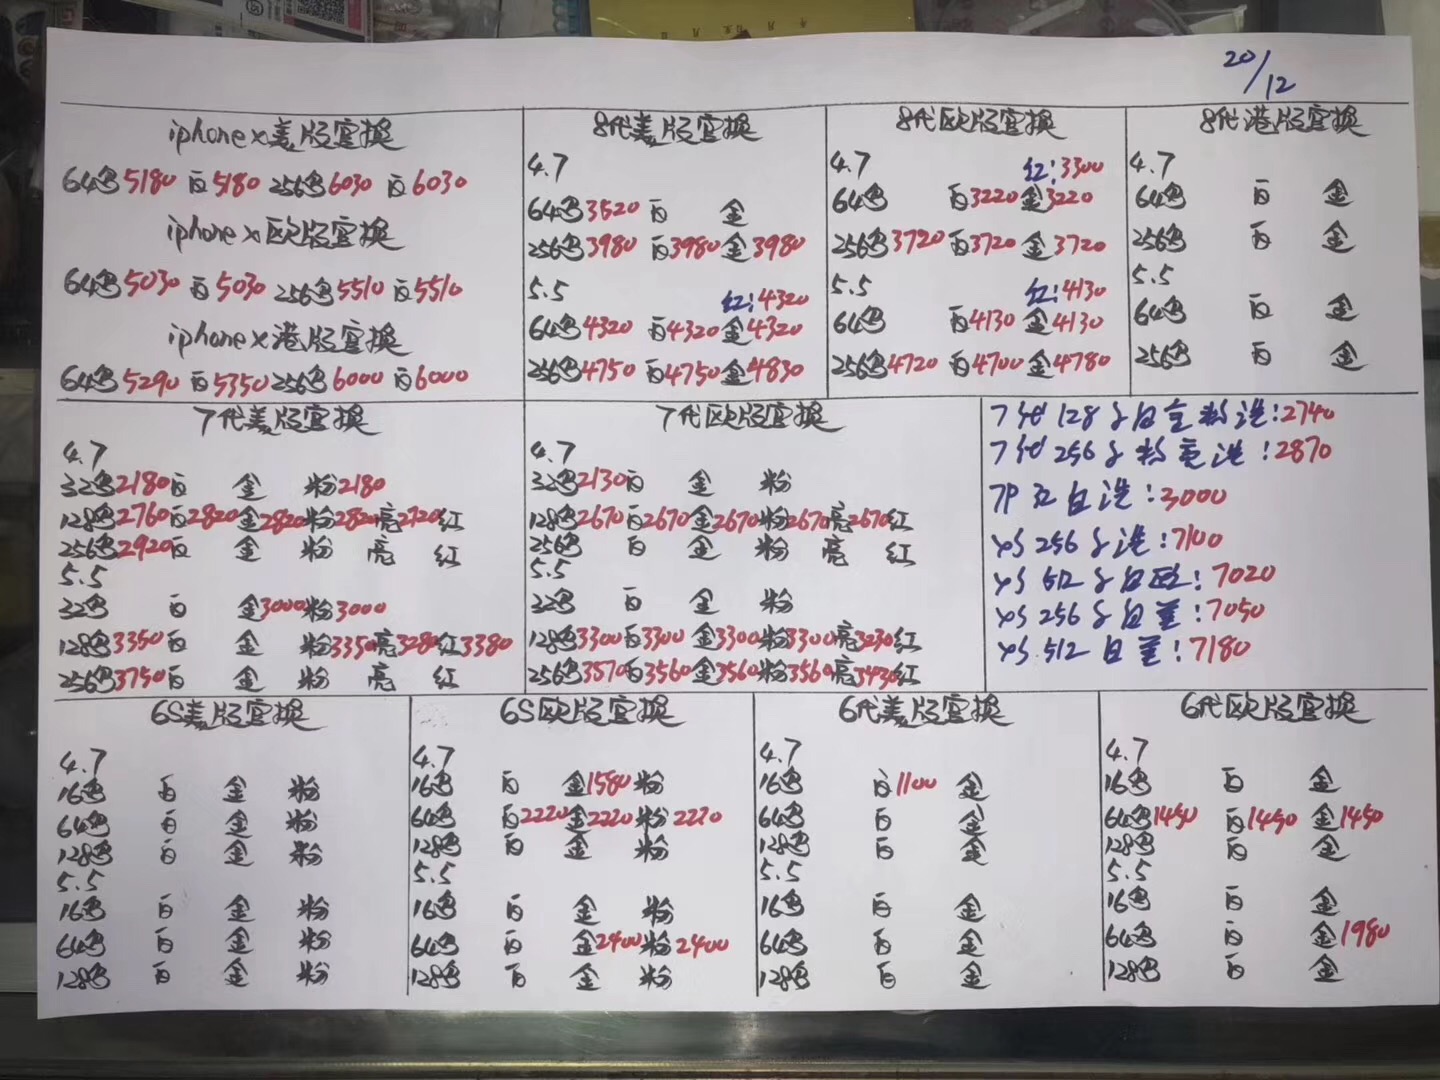 20/12
iphone x美版官换
64色5180 白5180 256色6030 白6030
iphone x欧版官换
64色5030 白5030 256色5510 白5510
iphone x港版官换
64色5290 白5350 256色6000 白6000
8代美版官换
4.7
64色3520 白 金
256色3980 白3980 金3980
5.5 红:4320
64色4320 白4320 金4320
256色4750 白4750 金4830
8代欧版官换
4.7 红:3300
64色 白3220 金3220
256色3720 白3720 金3720
5.5 红:4130
64色 白4130 金4130
256色4720 白4700 金4780
8代港版官换
4.7
64色 白 金
256色 白 金
5.5
64色 白 金
256色 白 金
7代美版官换
4.7
32色2180 白 金 粉2180
128色2760 白2820 金2820 粉2820 亮2720 红
256色2920 白 金 粉 亮 红
5.5
32色 白 金3000 粉3000
128色3350 白 金 粉3350 亮3280 红3380
256色3750 白 金 粉 亮 红
7代欧版官换
4.7
32色2130 白 金 粉
128色2670 白2670 金2670 粉2670 亮2670 红
256色 白 金 粉 亮 红
5.5
32色 白 金 粉
128色3300 白3300 金3300 粉3300 亮3230 红
256色3570 白3560 金3560 粉3560 亮3430 红
7代128 白金粉港:2740
7代256 粉亮港:2870
7P 红白港:3000
XS 256 港:7100
XS 512 白欧:7020
XS 256 白美:7050
XS 512 白美:7180
6S美版官换
4.7
16色 白 金 粉
64色 白 金 粉
128色 白 金 粉
5.5
16色 白 金 粉
64色 白 金 粉
128色 白 金 粉
6S欧版官换
4.7
16色 白 金1580 粉
64色 白2220 金2220 粉2220
128色 白 金 粉
5.5
16色 白 金 粉
64色 白 金2400 粉2400
128色 白 金 粉
6代美版官换
4.7
16色 白1100 金
64色 白 金
128色 白 金
5.5
16色 白 金
64色 白 金
128色 白 金
6代欧版官换
4.7
16色 白 金
64色1450 白1450 金1450
128色 白 金
5.5
16色 白 金
64色 白 金1980
128色 白 金